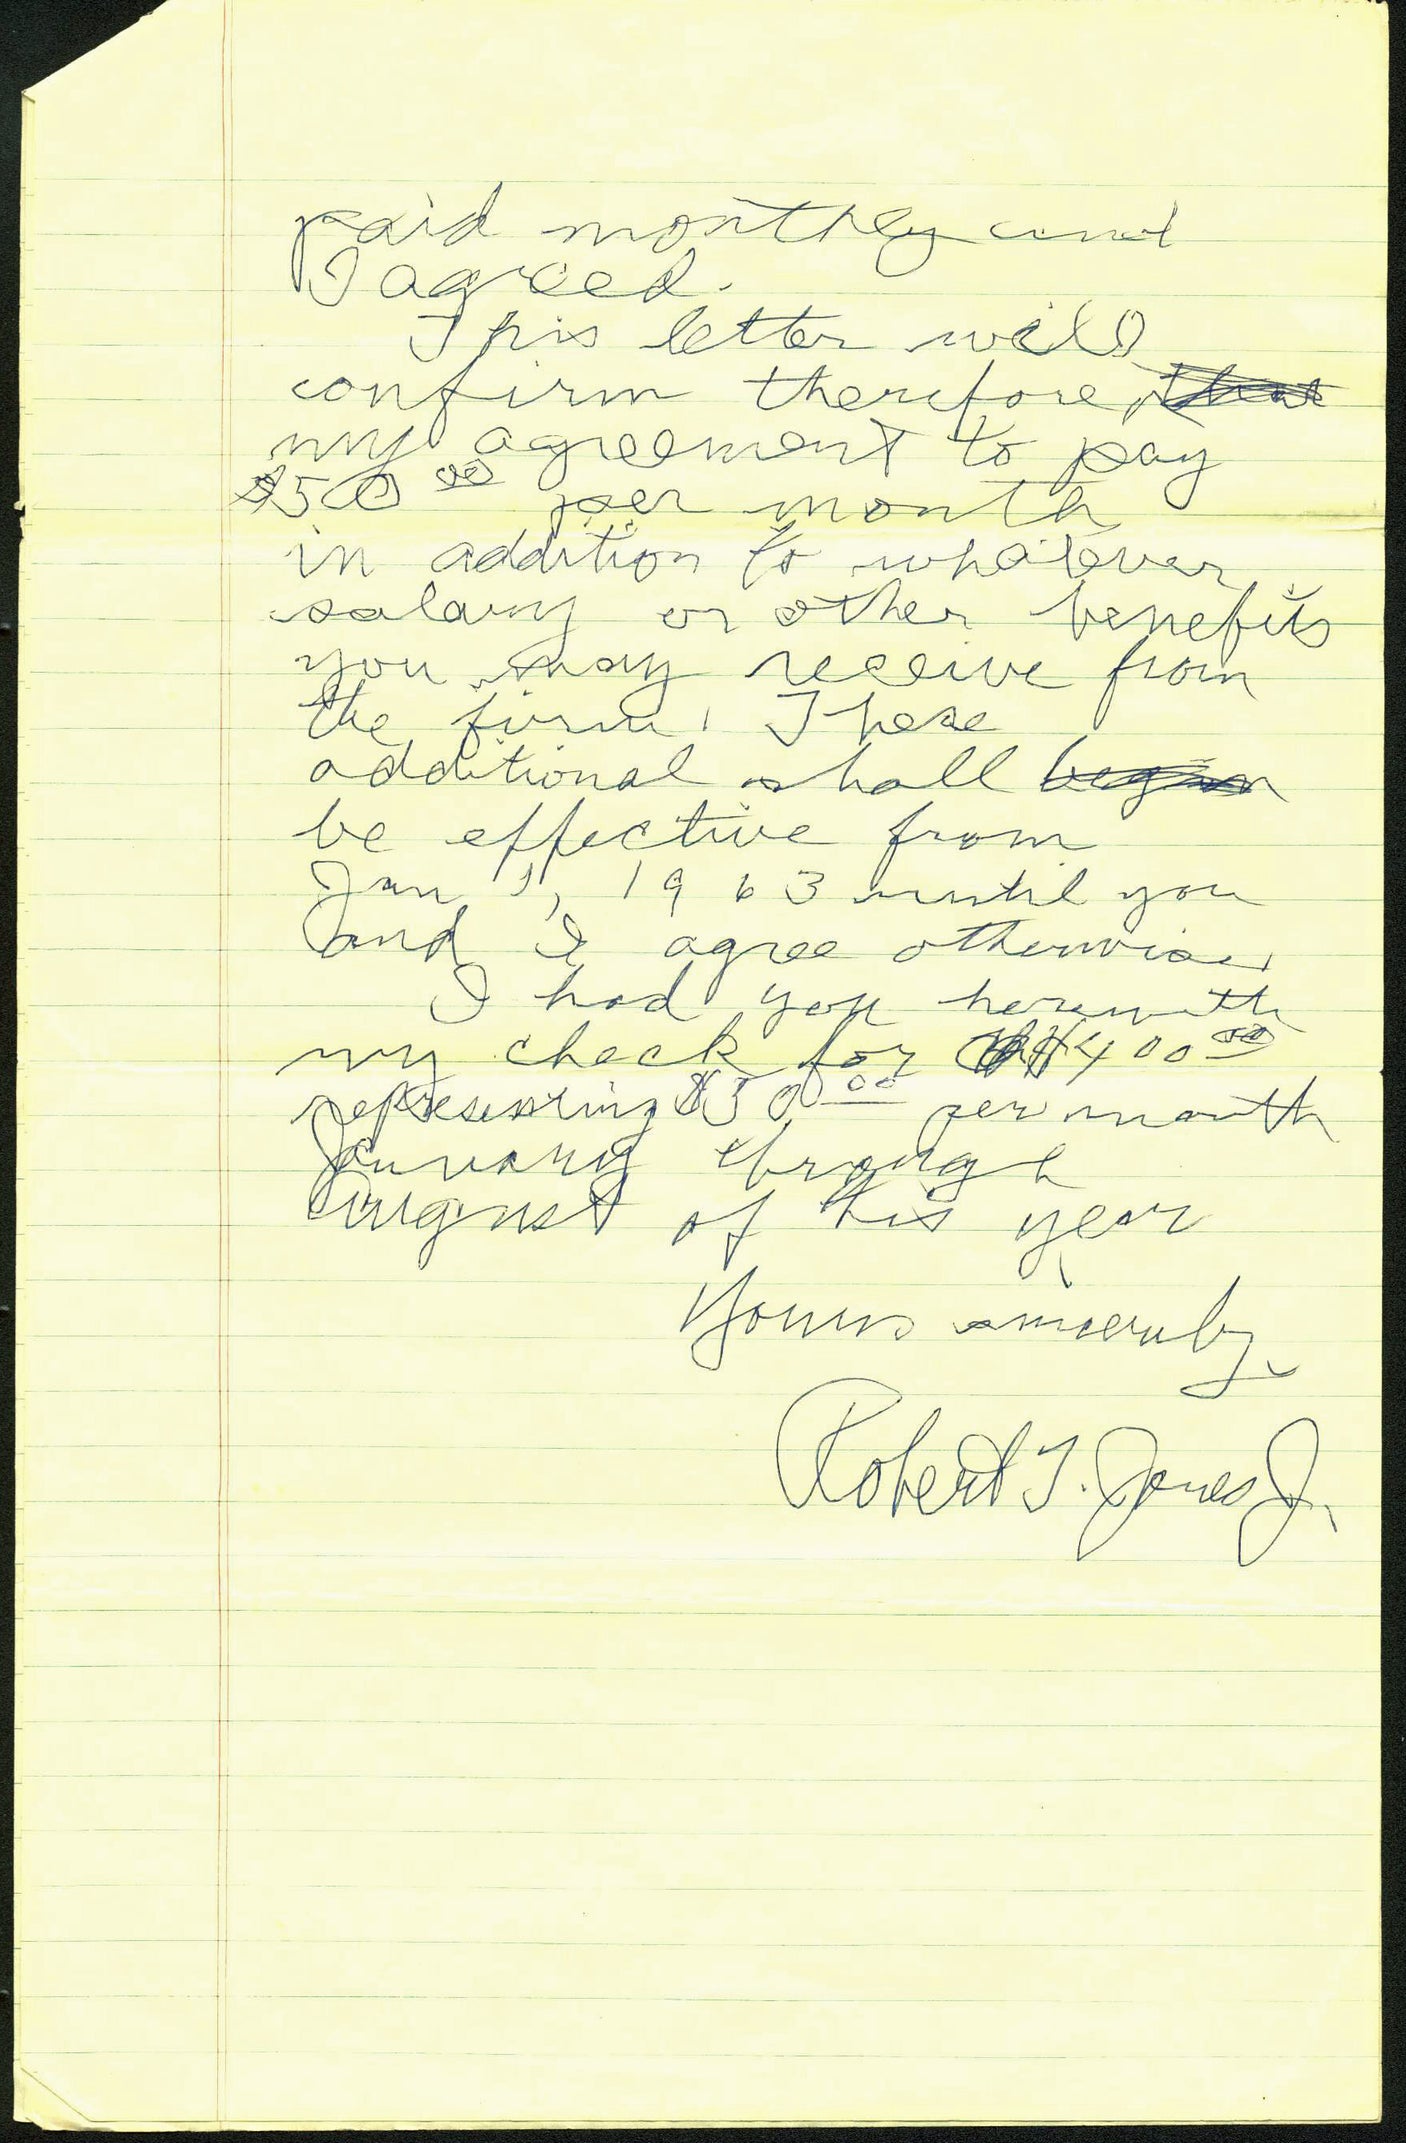 paid monthly and
I agreed.
This letter will
confirm therefore, that
my agreement to pay
$50 00 per month
in addition to whatever
salary or other benefits
you may receive from
the firm. These
additional shall began
be effective from
Jan 1, 1963 until you
and I agree otherwise.
I had you herewith
my check for $400 00
representing $50 00 per month
January through
August of this year
Yours sincerely,
Robert T. Jones J.